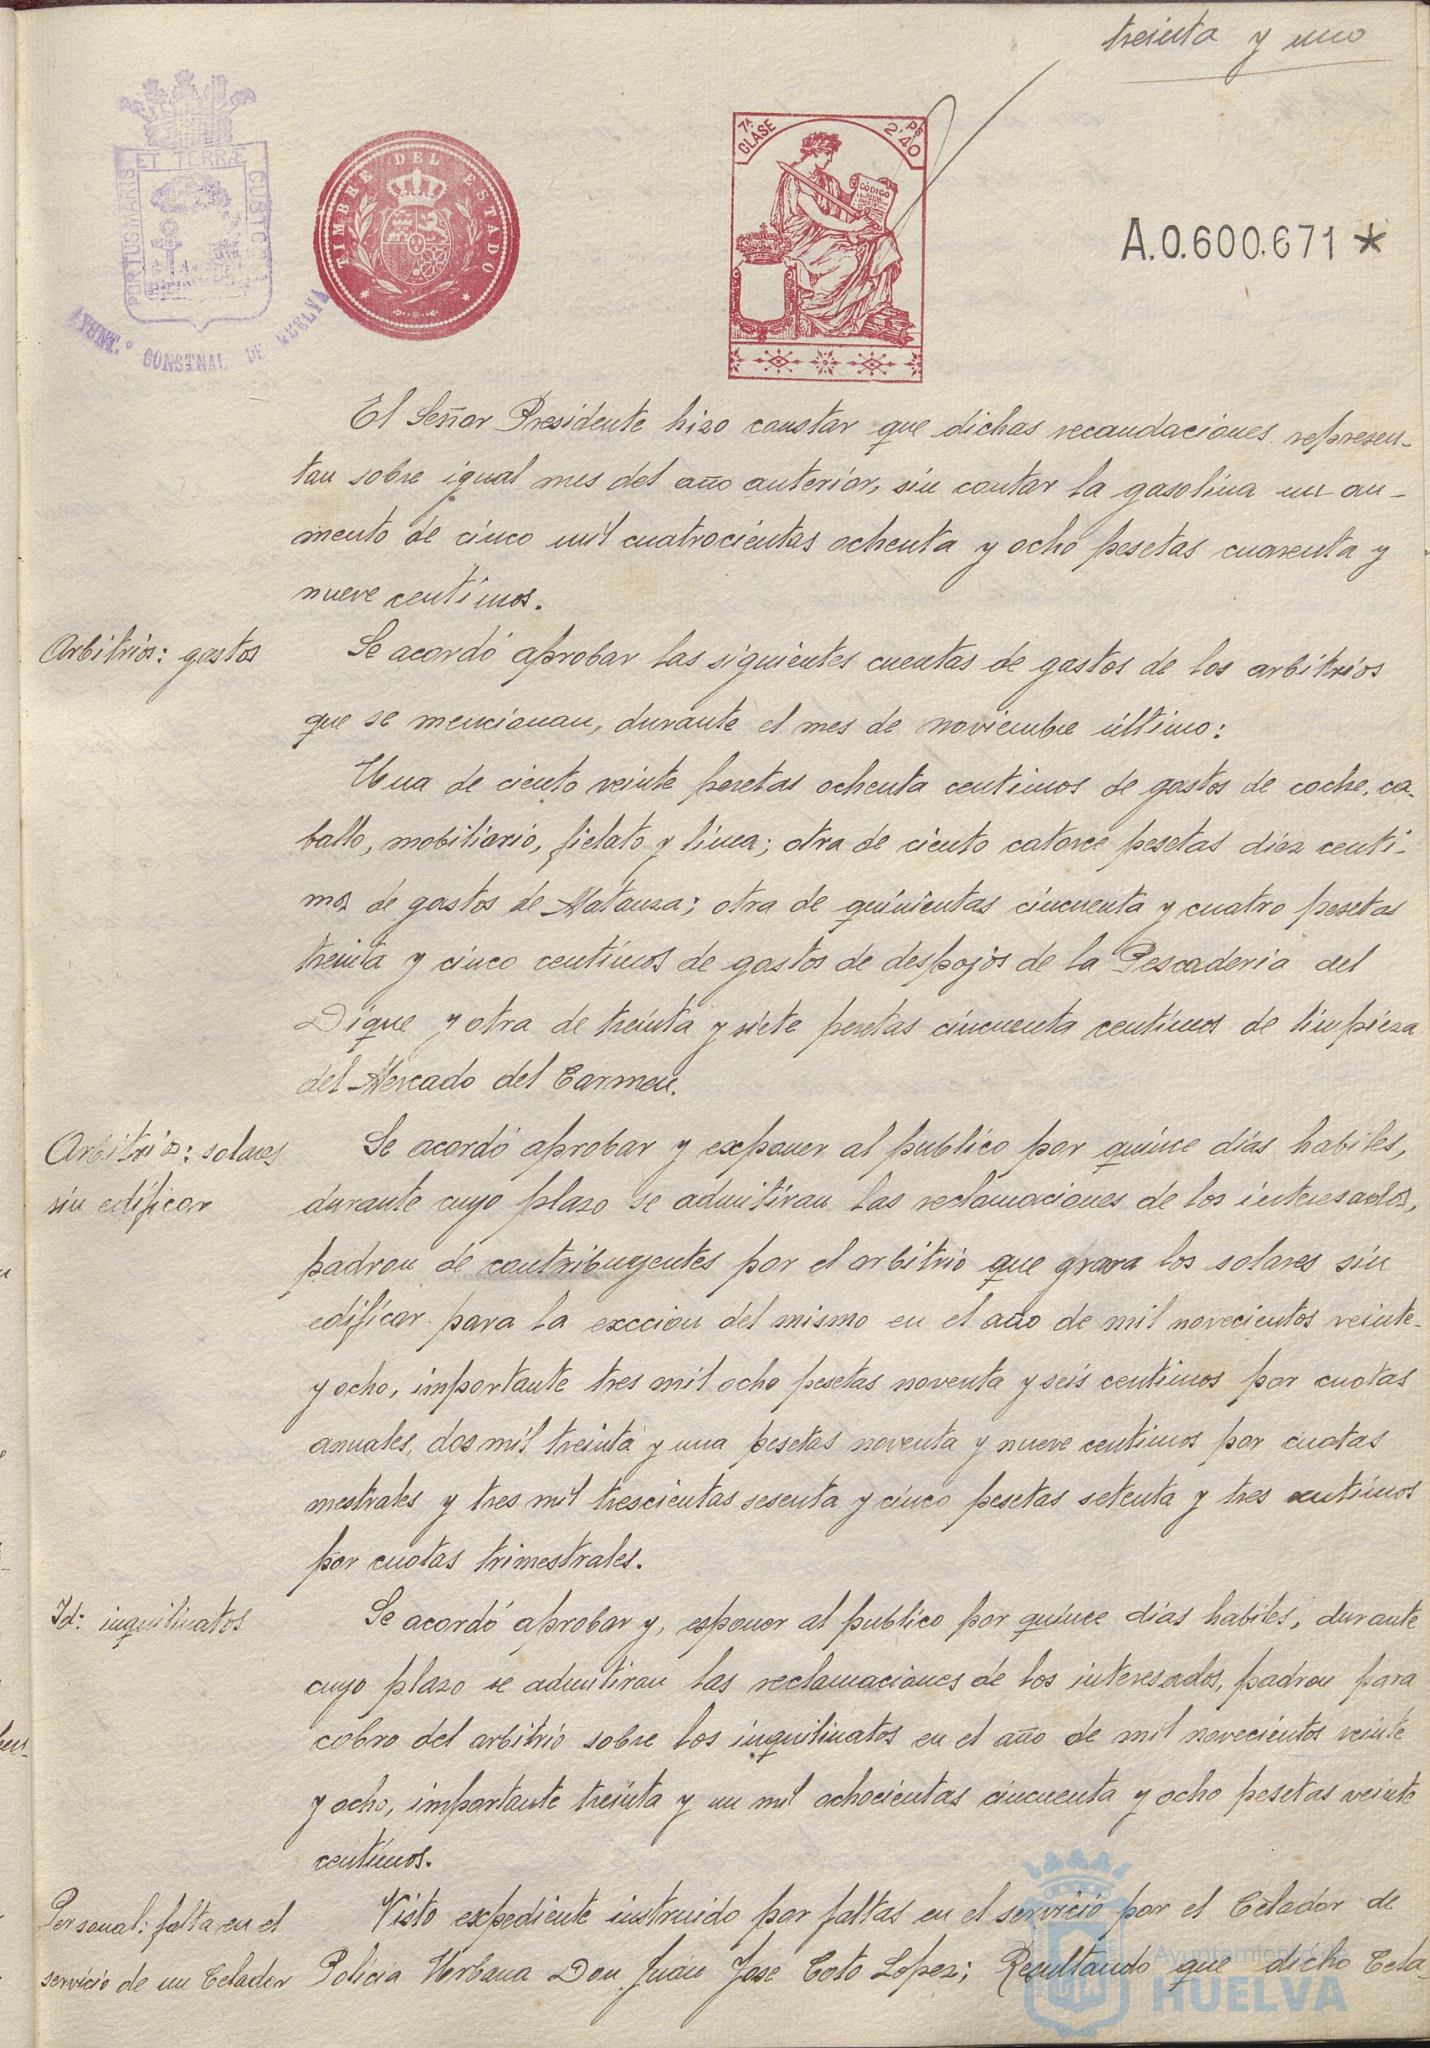 treinta y uno
PORTUS MARIS ET TERRÆ CUSTODIA
AYUNT.º CONSTNAL DE HUELVA
TIMBRE DEL ESTADO
7ª CLASE
PS 2'40
CÓDIGO
A.0.600.671 *
El Señor Presidente hizo constar que dichas recaudaciones represen-
tan sobre igual mes del año anterior, sin contar la gasolina un au-
mento de cinco mil cuatrocientas ochenta y ocho pesetas cuarenta y
nueve centimos.
Arbitrios: gastos
Se acordó aprobar las siguientes cuentas de gastos de los arbitrios
que se mencionan, durante el mes de noviembre último:
Una de ciento veinte pesetas ochenta centimos de gastos de coche, ca-
ballo, mobiliario, fielato y linea; otra de ciento catorce pesetas diez centi-
mos de gastos de Matanza; otra de quinientas cincuenta y cuatro pesetas
treinta y cinco centimos de gastos de despojos de la Pescaderia del
Dique y otra de treinta y siete pesetas cincuenta centimos de limpieza
del Mercado del Carmen.
Arbitrios: solares
sin edificar
Se acordó aprobar y exponer al publico por quince dias habiles,
durante cuyo plazo se admitiran las reclamaciones de los interesados,
padron de contribuyentes por el arbitrio que grava los solares sin
edificar para la exccion del mismo en el año de mil novecientos veinte-
y ocho, importante tres mil ocho pesetas noventa y seis centimos por cuotas
anuales, dos mil treinta y una pesetas noventa y nueve centimos por cuotas
mestrales y tres mil trescientas sesenta y cinco pesetas setenta y tres centimos
por cuotas trimestrales.
Id: inquilinatos
Se acordó aprobar y, esponer al publico por quince dias habiles, durante
cuyo plazo se admitiran las reclamaciones de los interesados, padron para
cobro del arbitrio sobre los inquilinatos en el año de mil novecientos veinte
y ocho, importante treinta y un mil ochocientas cincuenta y ocho pesetas veinte
centimos.
Personal: falta en el
servicio de un Celador
Visto expediente instruido por faltas en el servicio por el Celador de
Policia Urbana Don Juan Jose Coto Lopez; Resultando que dicho Cela-
Ayuntamiento de
HUELVA